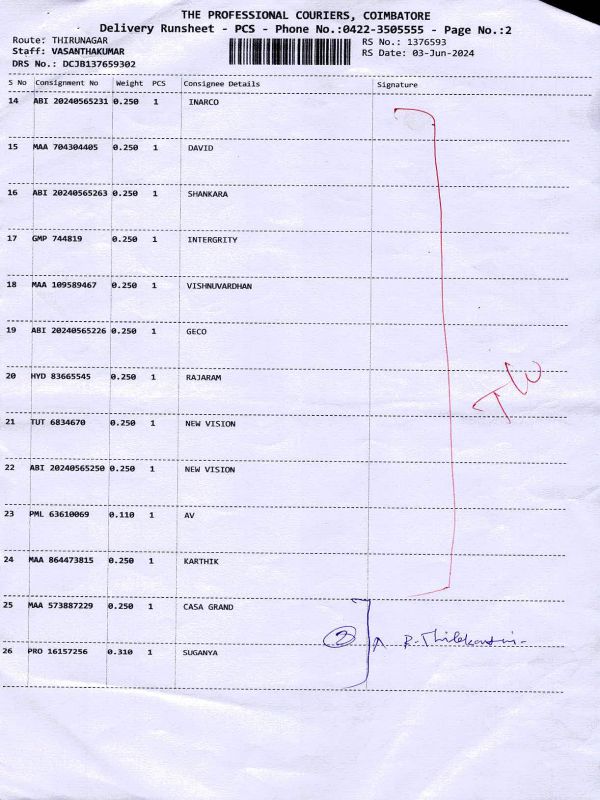 THE PROFESSIONAL COURIERS, COIMBATORE
Delivery Runsheet - PCS - Phone No.:0422-3505555 - Page No.:2
Route: THIRUNAGAR RS No.: 1376593
Staff: VASANTHAKUMAR RS Date: 03-Jun-2024
DRS No.: DCJB137659302
S No Consignment No Weight PCS Consignee Details Signature
14 ABI 20240565231 0.250 1 INARCO
15 MAA 704304405 0.250 1 DAVID
16 ABI 20240565263 0.250 1 SHANKARA
17 GMP 744819 0.250 1 INTERGRITY
18 MAA 109589467 0.250 1 VISHNUVARDHAN
19 ABI 20240565226 0.250 1 GECO
20 HYD 83665545 0.250 1 RAJARAM
TW
21 TUT 6834670 0.250 1 NEW VISION
22 ABI 20240565250 0.250 1 NEW VISION
23 PML 63610069 0.110 1 AV
24 MAA 864473815 0.250 1 KARTHIK
25 MAA 573887229 0.250 1 CASA GRAND
2 R.
26 PRO 16157256 0.310 1 SUGANYA